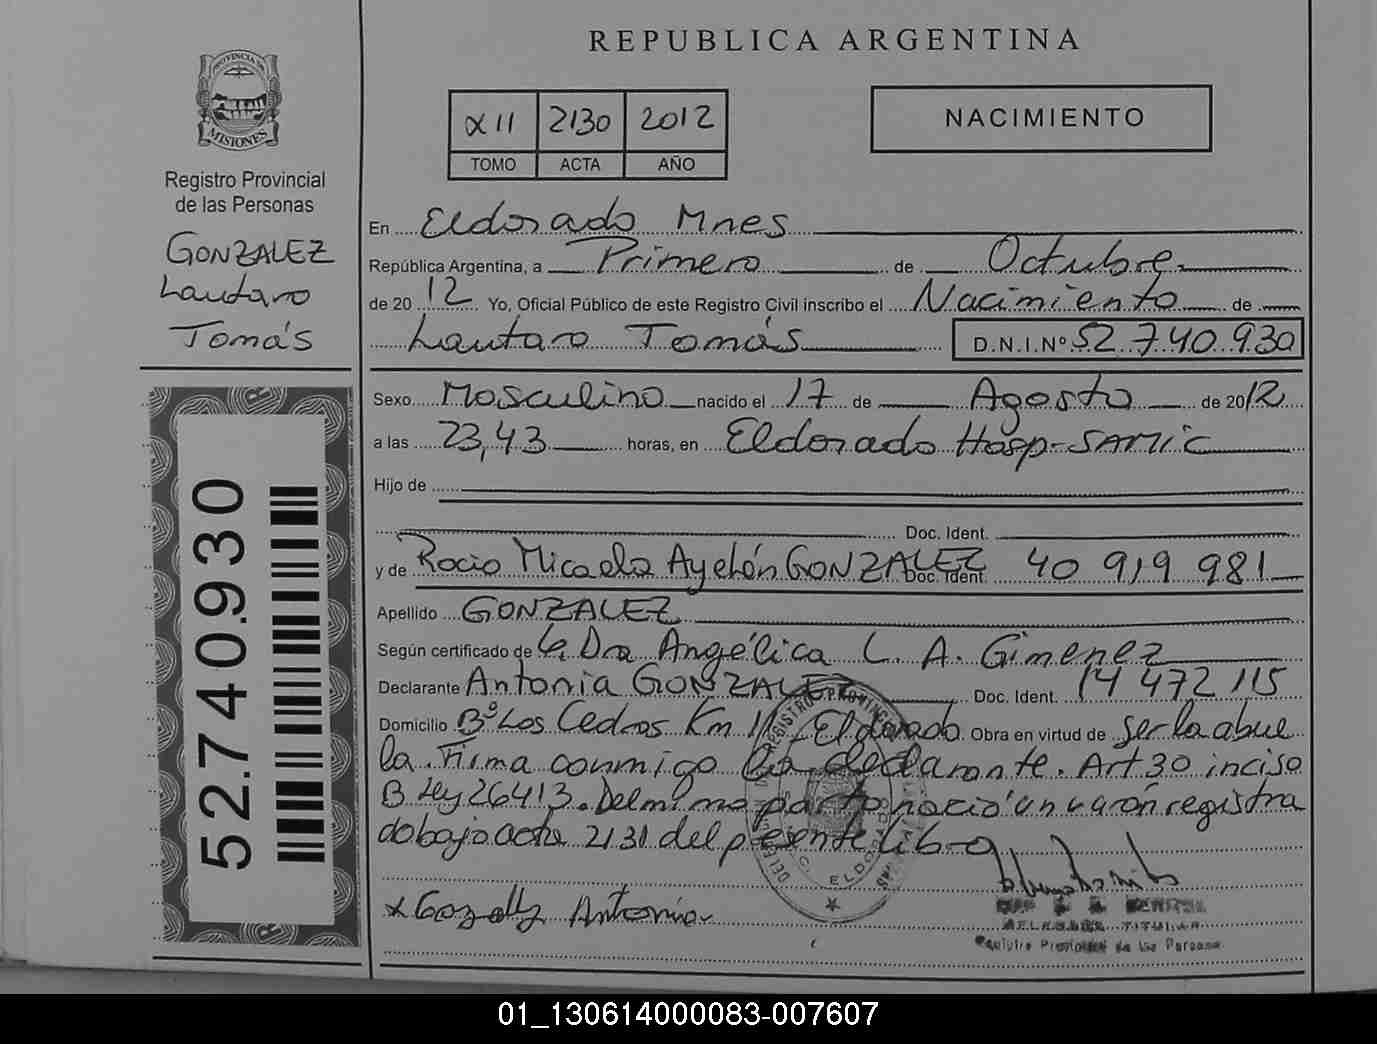 REPUBLICA ARGENTINA
PROVINCIA DE MISIONES
Registro Provincial
de las Personas
GONZALEZ
Lautaro
Tomás
XII 2130 2012
TOMO ACTA AÑO
NACIMIENTO
En Eldorado Mnes
República Argentina, a Primero de Octubre
de 2012 Yo, Oficial Público de este Registro Civil inscribo el Nacimiento de
Lautaro Tomás D.N.I.Nº 52.740.930
Sexo Masculino nacido el 17 de Agosto de 2012
a las 23,43 horas, en Eldorado Hosp-SAMIC
Hijo de
Doc. Ident.
y de Rocio Micaela Ayelén GONZALEZ Doc. Ident. 40 919 981
Apellido GONZALEZ
Según certificado de Dra Angélica L. A. Gimenez
Declarante Antonia GONZALEZ Doc. Ident. 14 472 115
Domicilio Bº Los Cedros Km 11 - Eldorado Obra en virtud de ser la abue
la. Firma conmigo la declarante. Art 30 inciso
B Ley 26413. Del mismo parto nació un varón registra
do bajo acta 2131 del presente libro
x Antonia
DELEGADA TITULAR
Registro Provincial de las Personas
ELDORADO
52.740.930
01_130614000083-007607